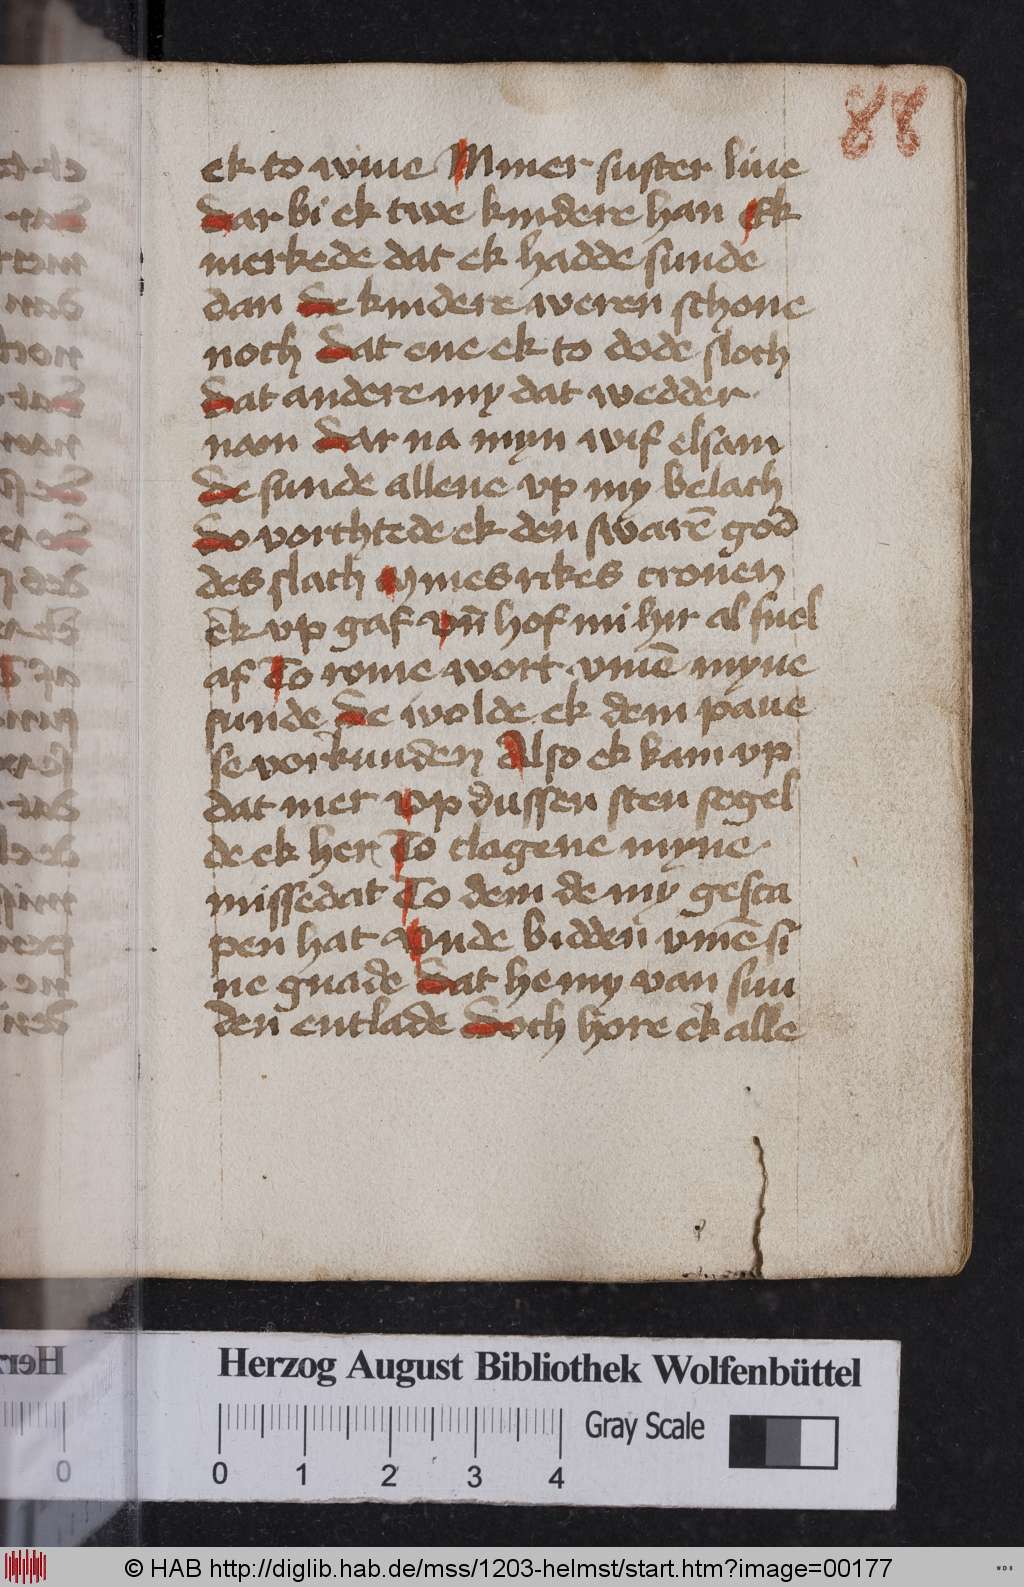 88
ek to wiue Miner suster liue
Dar bi ek twe kindere han Ek
merkede dat ek hadde sunde
dan De kindere weren schone
noch Dat ene ek to dode sloch
Dat andere my dat wedder
nam Dar na myn wif elsam
De sunde allene vp my belach
Do vorchtede ek den swarē god
des slach Mines rikes cronen
ek vp gaf vn̄ hof mi hir al snel
af To rome wort vmē myne
sunde De wolde ek dem paue
se vorkunden Also ek kam vp
dat mer Vp dussen sten segel
de ek her To clagene myne
missedat To dem de my gesca
pen hat Vnde bidden vmē si
ne gnade Dat he my van sun
den entlade Doch hore ek alle
Herzog August Bibliothek Wolfenbüttel
Gray Scale
0 1 2 3 4
© HAB http://diglib.hab.de/mss/1203-helmst/start.htm?image=00177